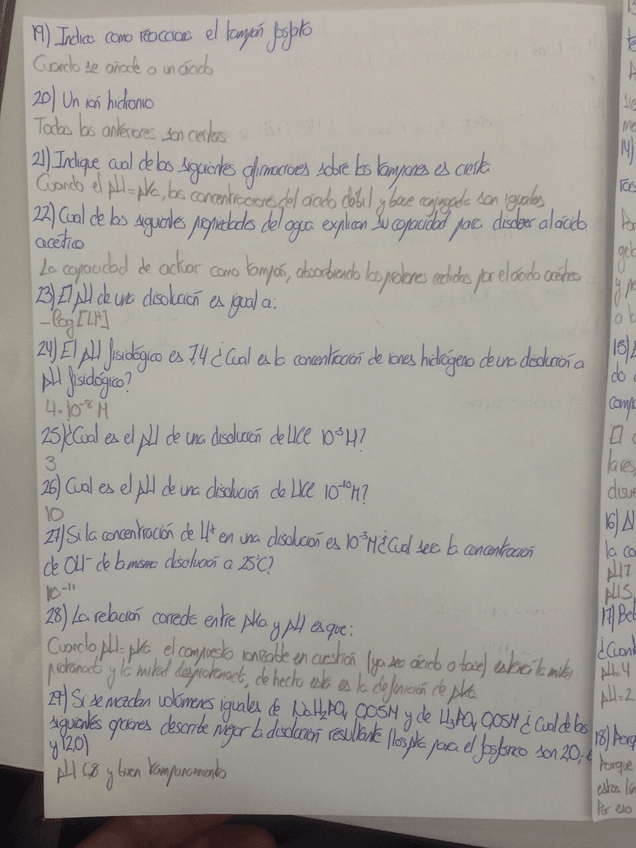 19) Indica como reacciona el tampón fosfato
Cuando se añade a un ácido
20) Un ión hidronio
Todas las anteriores son ciertas
21) Indique cual de las siguientes afirmaciones sobre los tampones es cierta.
Cuando el pH=pKa, las concentraciones del ácido débil y base conjugada son iguales
22) Cual de las siguientes propiedades del agua explican su capacidad para disolver al ácido
acético
La capacidad de actuar como tampón, absorbiendo los protones cedidos por el ácido acético
23) El pH de una disolución es igual a:
-log[H+]
24) El pH fisiológico es 7,4 ¿Cual es la concentración de iones hidrógeno de una disolución a
pH fisiológico?
4·10⁻⁸ M
25) ¿Cual es el pH de una disolución de HCl 10⁻³M?
3
26) Cual es el pH de una disolución de HCl 10⁻¹⁰M?
10
27) Si la concentración de H⁺ en una disolución es 10⁻³M ¿Cual sera la concentración
de OH⁻ de la misma disolución a 25°C?
10⁻¹¹
28) La relación correcta entre pKa y pH es que:
Cuando pH=pKa el compuesto ionizable en cuestión (ya sea ácido o base) estará la mitad
protonado y la mitad desprotonado, de hecho esta es la definición de pKa
29) Si se mezclan volúmenes iguales de NaH₂PO₄ 0,05M y de H₃PO₄ 0,05M ¿Cual de las
siguientes opciones describe mejor la disolución resultante (los pKa para el fosfórico son 2,0,
y 12,0)
pH 6,8 y buen tamponamiento
15)
do
El
16)
la co
pH 7
pH 5
17)
pH=4
pH=2
18) Porq
Porque
Por eso